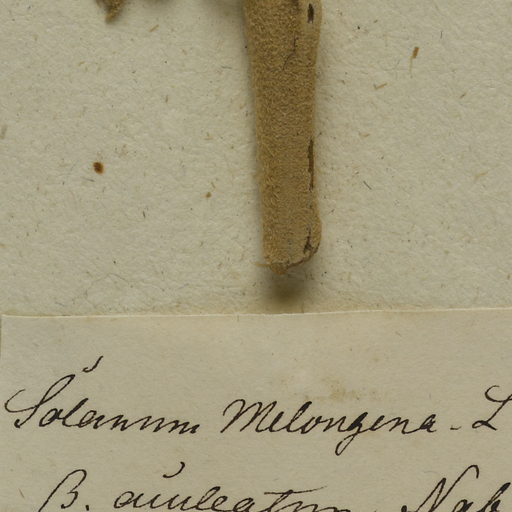 Solanum Melongena - L
B. aculeatum Nab